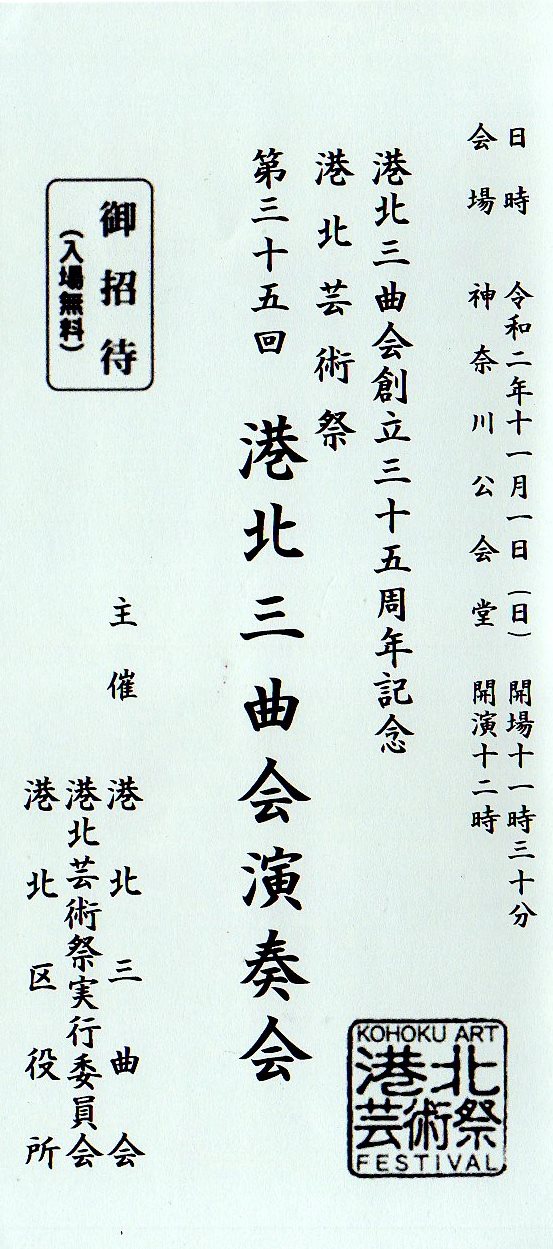 日時　令和二年十一月一日（日）　開場十一時三十分
会場　神奈川公会堂　開演十二時
港北三曲会創立三十五周年記念
港北芸術祭
第三十五回　港北三曲会演奏会
御招待
（入場無料）
主催　港北三曲会
港北芸術祭実行委員会
港北区役所
KOHOKU ART
港北
芸術祭
FESTIVAL